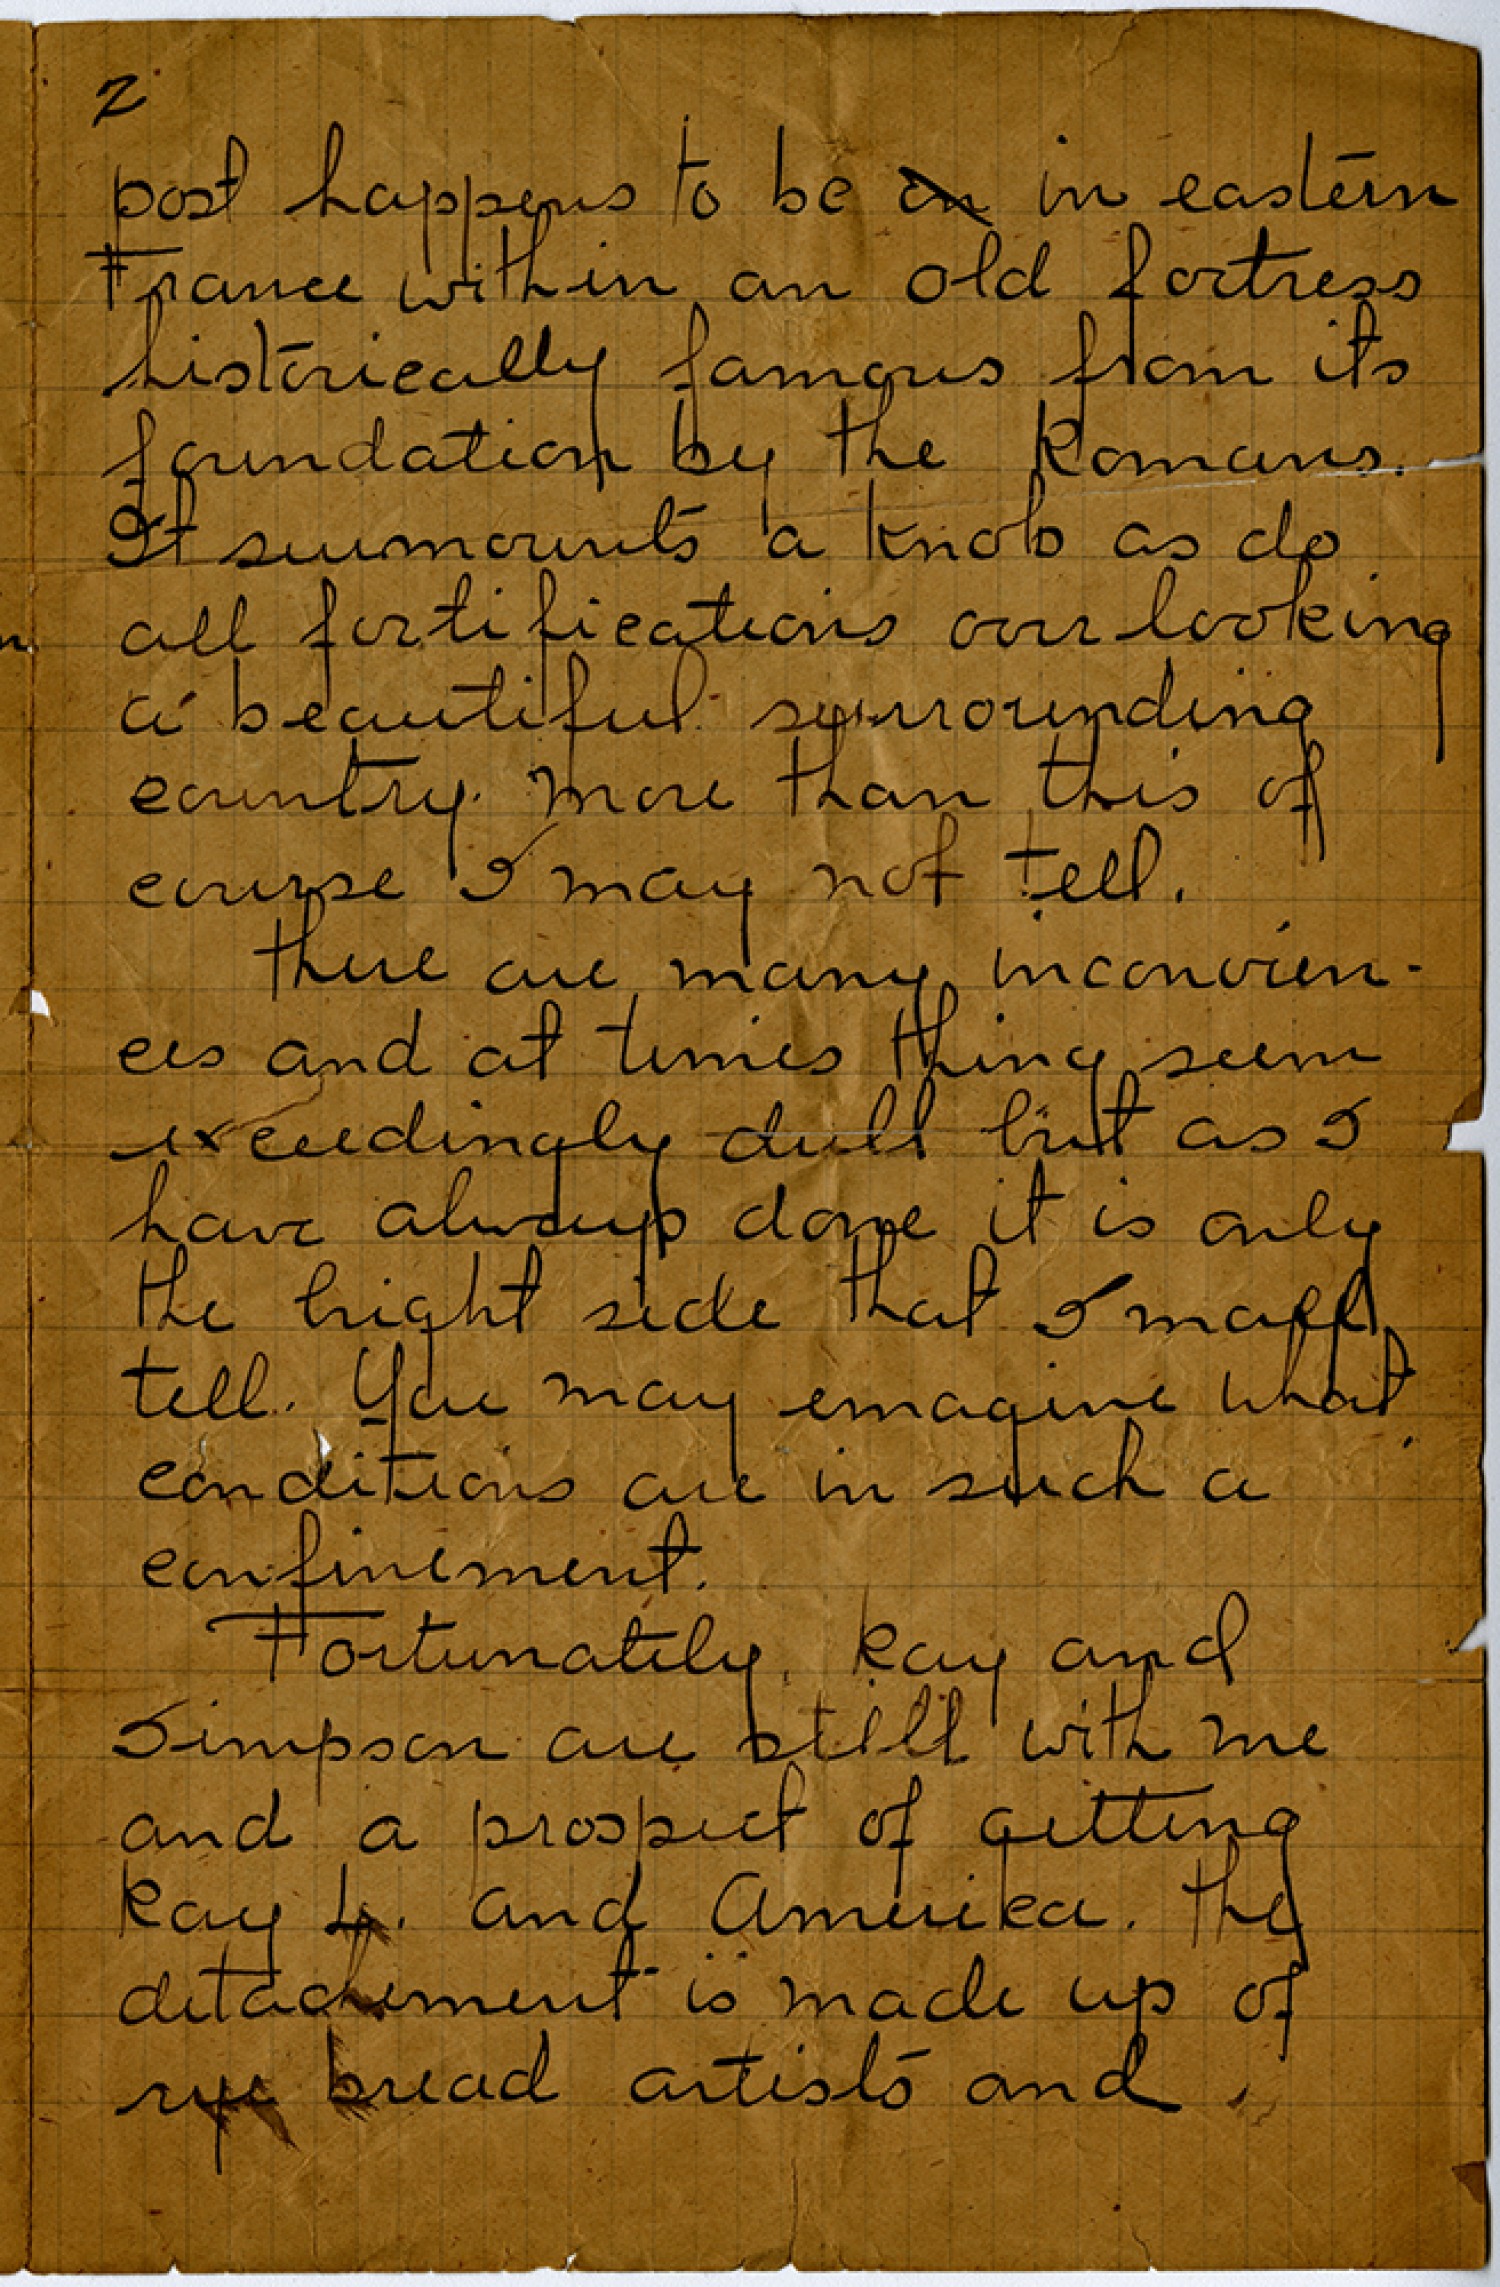 2
post happens to be an in eastern
France within an old fortress
historically famous from its
foundation by the Romans.
It surmounts a knob as do
all fortifications overlooking
a beautiful surrounding
country. More than this of
course I may not tell.
There are many inconvien-
ces and at times thing seem
exceedingly dull but as I
have always done it is only
the bright side that I
tell. You may emagine what
conditions are in such a
confinement.
Fortunately, Kay and
Simpson are still with me
and a prospect of getting
Kay L. and Amerika. The
detachement is made up of
rye bread artists and